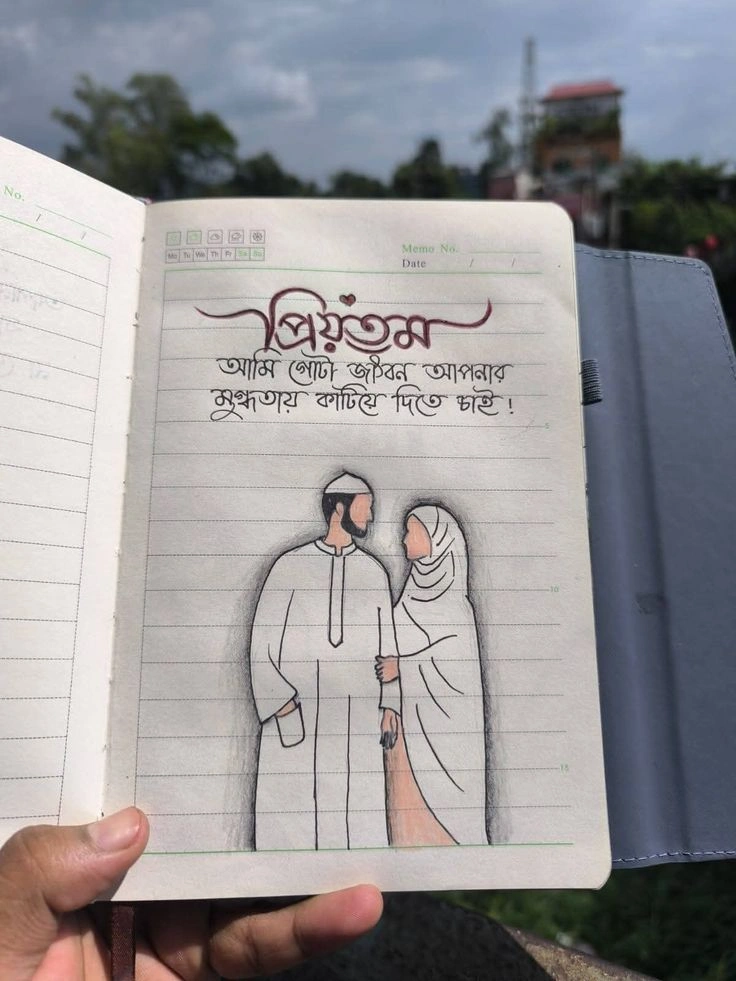 No.
/ /
Mo Tu We Th Fr Sa Su
Memo No.
Date / /
প্রিয়তম
আমি গোটা জীবন আপনার
মুগ্ধতায় কাটিয়ে দিতে চাই !
5
10
15